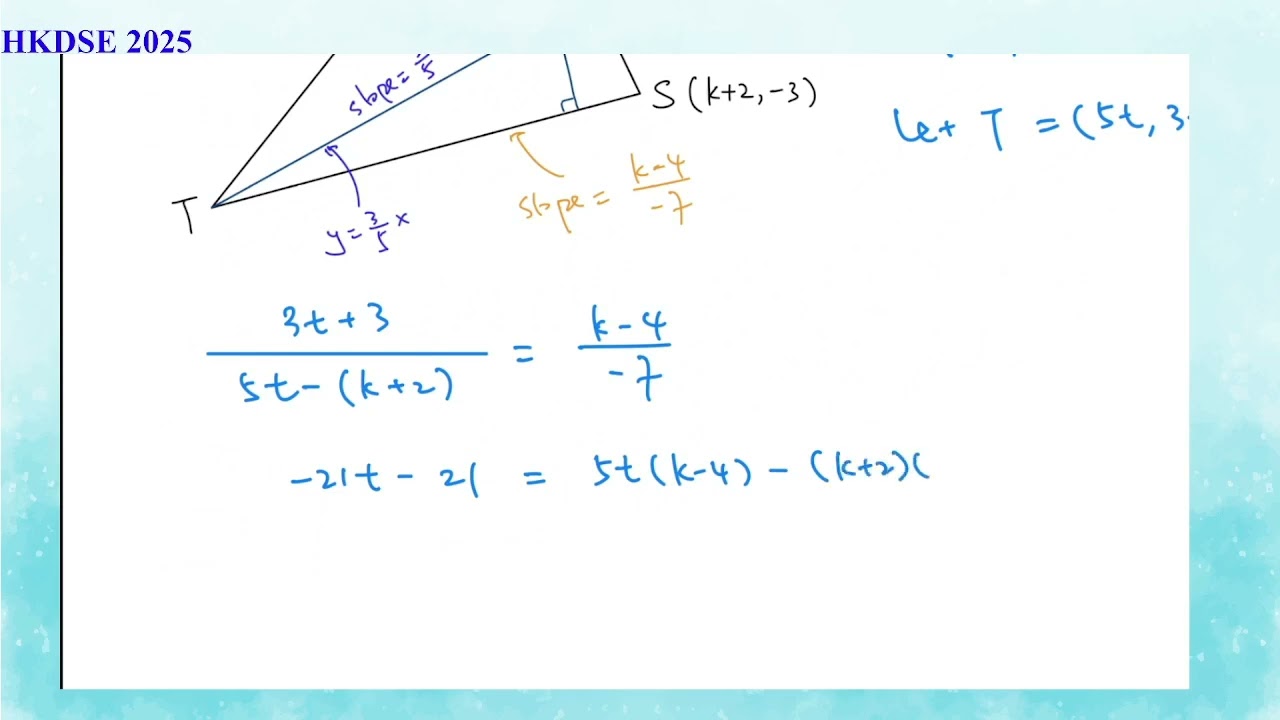 HKDSE 2025
slope = 3/5
S (k+2, -3)
let T = (5t, 3
slope = (k-4)/(-7)
T
y = 3/5 x
(3t+3)/(5t-(k+2)) = (k-4)/(-7)
-21t - 21 = 5t(k-4) - (k+2)(